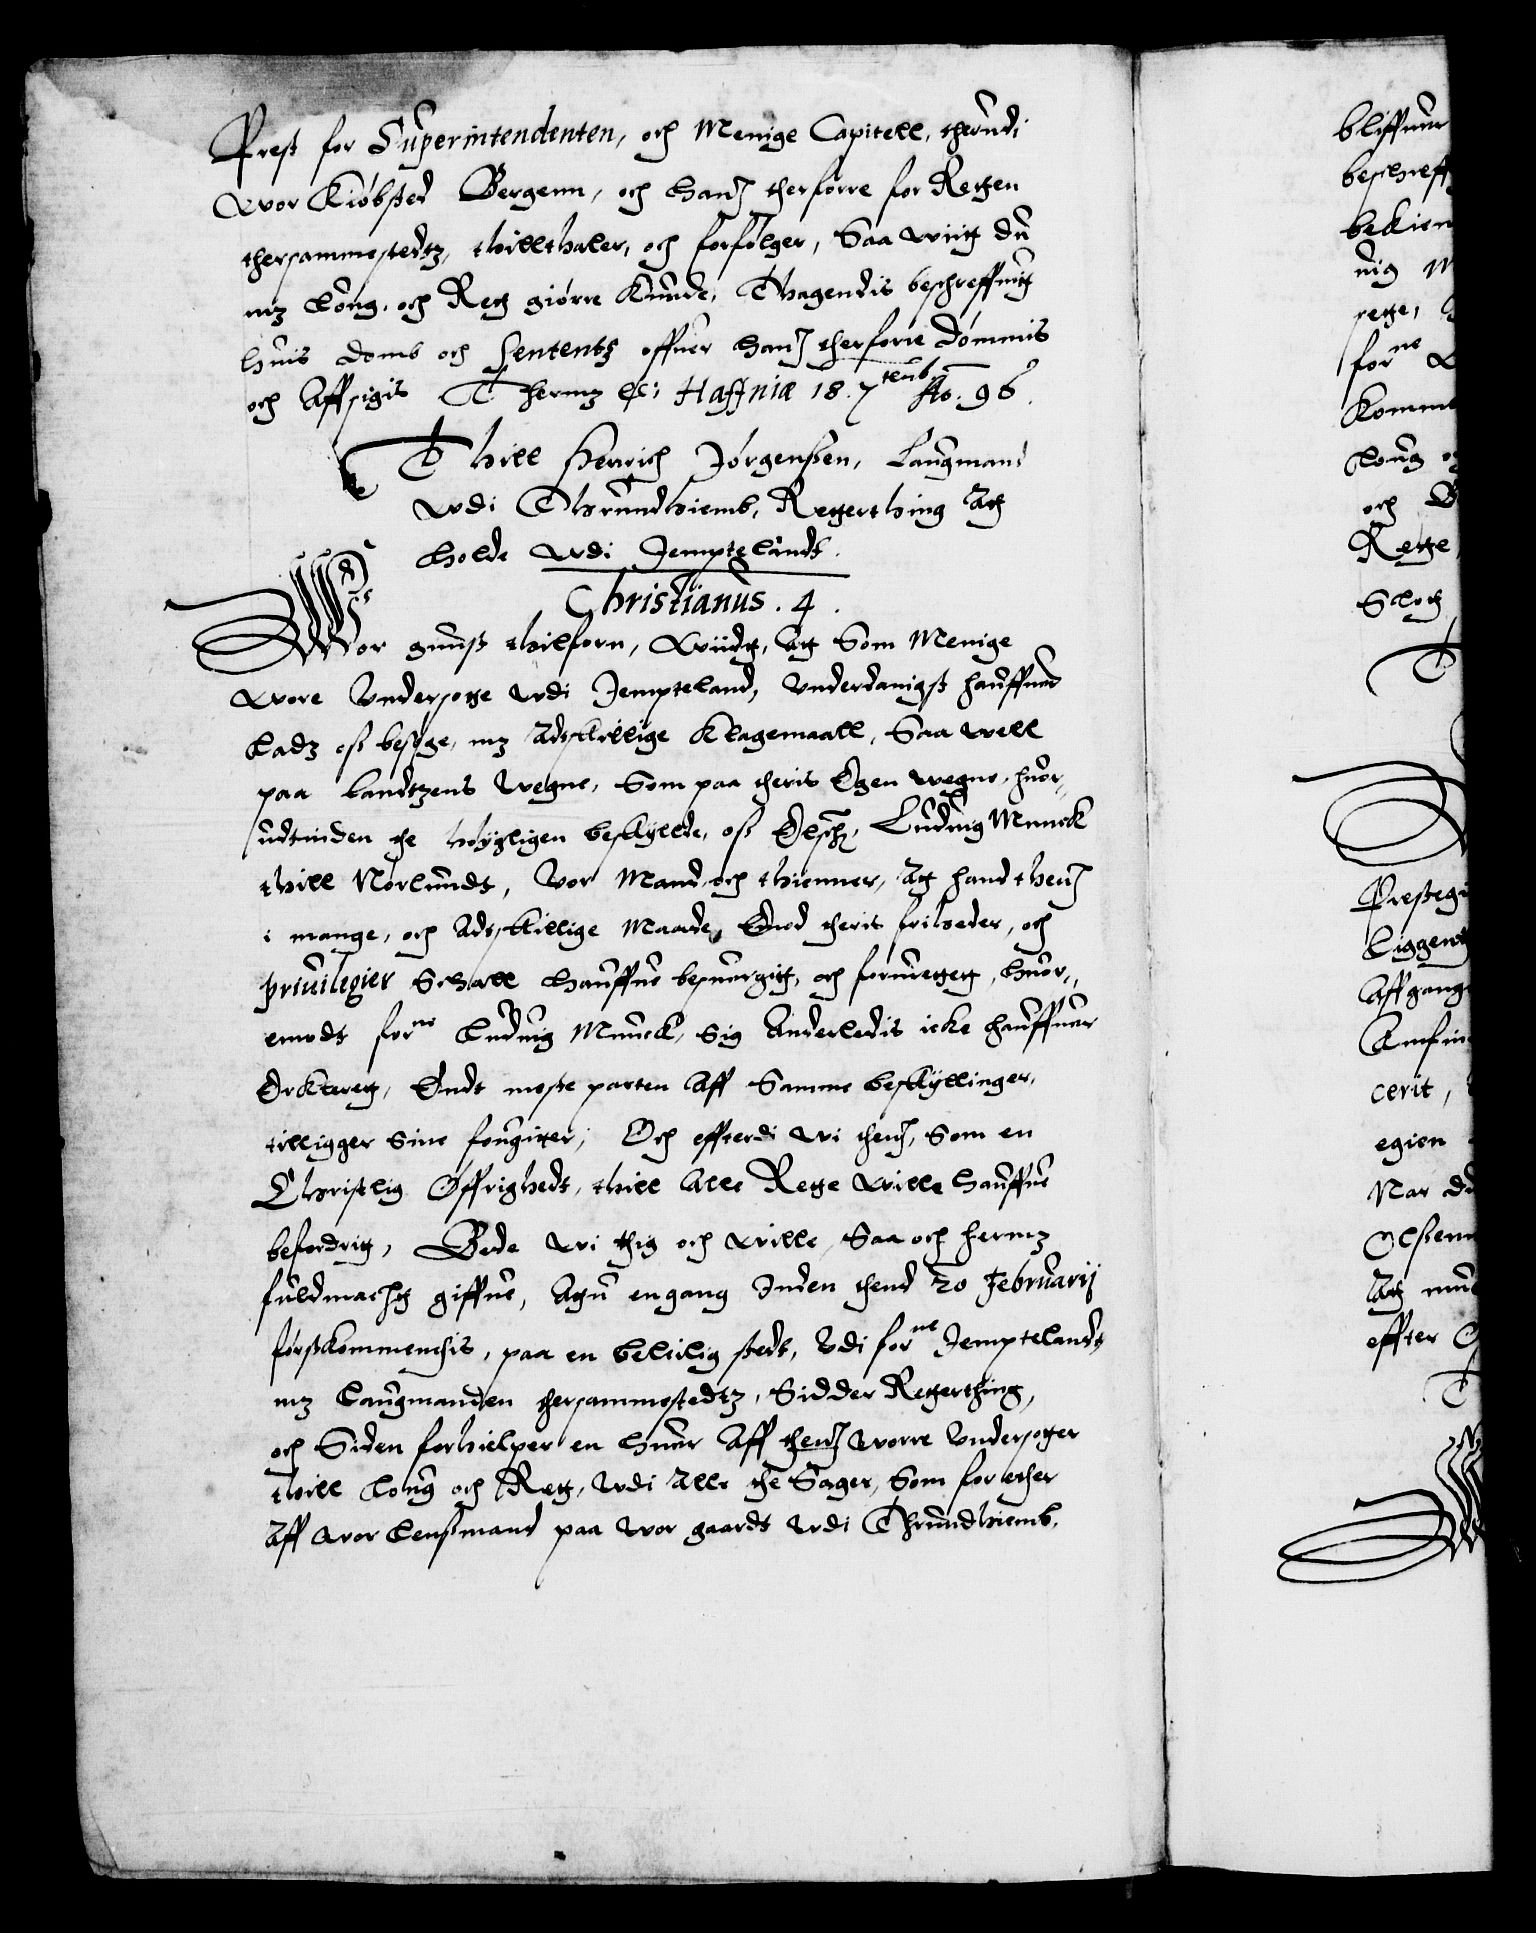 Prest for Superintendenten, och Menige Capitell, therudi
wor Kiøbsted Bergenn, och hanno therforre for Retten
thersammestedtz, thillthaler, och forfølger, Saa wiitt du
mz Loug, och Rett giørre Kunde, Thagendis beschreffuitt
huis domb och Sententz offuer hanno therforre dømmis
och Affsigis Thermz etc: Haffniæ 18. 7temb: Ao. 96.
Thill Henrich Jørgenssen, Laugmand
wdi Thrundhiemb, Retterthing Att
holde wdi Jempteland.
Christianus. 4.
Wor gunst thilforn, Wiidt, Att Som Menige
wore Undersotte wdi Jempteland, Underdanigst haffuer
Ladz oss besøge, mz Adskillige Klagemaall, Saa well
paa Landtzens Wegne, Som paa theris Egen wegne, huor-
udtinden the høygligen beskylde, oss Elsche, Ludwig Munck
thill Nørlundt, Wor Mand och thienner, Att hand thenno
i mange, och Adskillige Maade, Emod theris friheder, och
priuilegier Schall haffue besuergitt, och forurettet, huor-
emodt forne Ludwig Munck, Sig Anderledis icke haffuer
Ercklerett, End meste parten Aff Samme beskyllinger,
tilligger Sine fougitter, Och effterdi wi thenno, Som en
Christelig Øffrighedt, thill Alle Rette wille haffue
befordrit, Bede wi thig och wille, Saa och hermz
fuldmacht giffue, Att du engang Inden thend 20 Februarij
førstkommendis, paa en beleilig sted, Udi forne Jempteland
mz Laugmanden thersammestedtz, Sidder Retterthing,
och Siden forhielper en huer Aff thenno worre Undersotter
thill Loug och Rett, wdi Alle the Sager, Som for ether
Aff wor Lensmand paa wor gaard wdi Thrundhiemb,
bliffuer
beschreff
nig M
forne
Komme
Loug
och
Rette
Slott
Prestegi
Liggend
Affgang
egien
Nar du
Olssenn
Att
effter